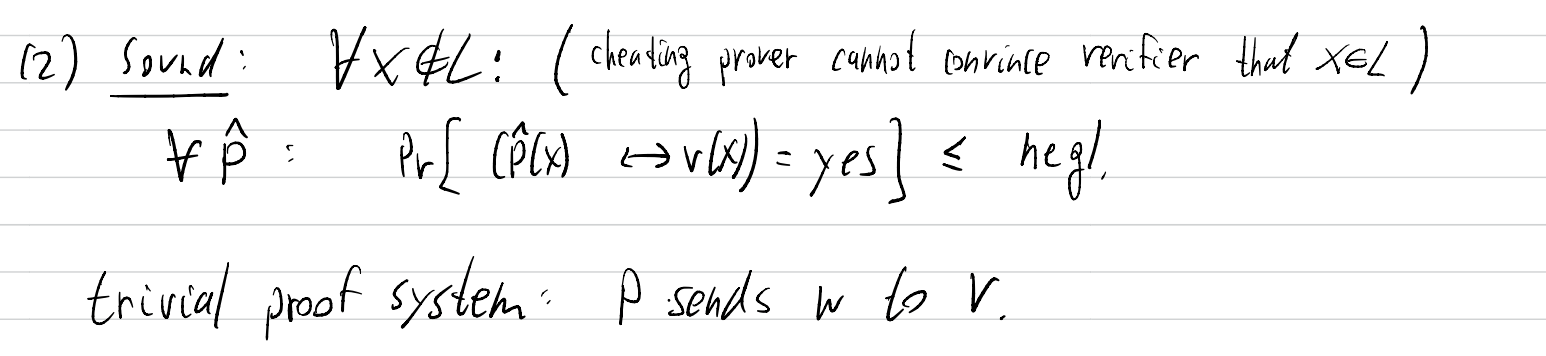 (2) Sound: ∀x∉L: (cheating prover cannot convince verifier that x∈L)
∀ p̂ : Pr[ (p̂(x) ↔ v(x)) = yes ] ≤ negl.
trivial proof system: P sends w to V.